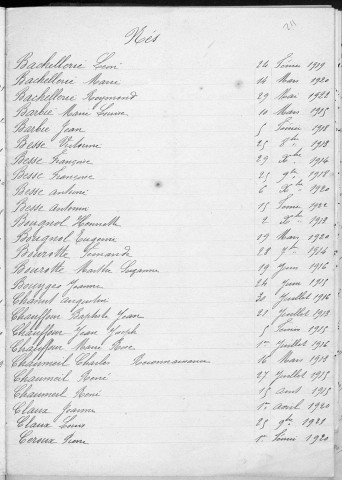 Nés
Bachellerie Léon 24 Février 1919
Bachellerie Marie 14 Mars 1920
Bachellerie Reymond 29 Mai 1922
Barbie Marie Louise 10 Mars 1915
Barbie Jean 5 Février 1918
Besse Victorine 25 8bre 1913
Besse Françoise 29 Xbre 1914
Besse Françoise 25 9bre 1918
Besse Antoine 6 Xbre 1920
Besse Antonin 15 Février 1922
Bougnol Henriette 2 Xbre 1913
Bougnol Eugénie 19 Mars 1920
Bourotte Fernande 28 7bre 1914
Bourotte Marthe Suzanne 29 Juin 1916
Bruyges Jeanne 24 Juin 1915
Chanut Augustin 20 Juillet 1916
Chauffour Baptiste Jean 21 Juillet 1913
Chauffour Jean Joseph 5 Février 1915
Chauffour Marie Rose 1er Juillet 1916
Chaumeil Charles 16 Mars 1913
Chaumeil René 27 Juillet 1915
Chaumeil René 15 août 1915
Claux Jeanne 1er avril 1920
Claux Louis 25 9bre 1921
Ceroux 1er Février 1920